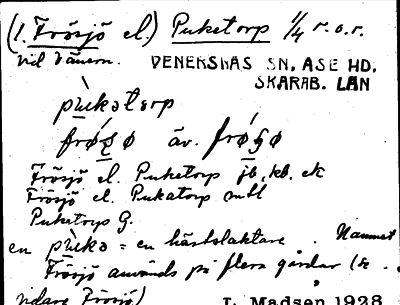 (1. Frösjö el.) Puketorp 1/4 r.o.r.
vid Vänern. VENERSNÄS SN, ÅSE HD.
SKARAB. LÄN
pùkətorp
frǿʂø äv. frǿɧø
Frösjö el. Puketorp jb, kb, ek
Frösjö el. Pukatorp mtl
Puketorp G.
en pùkə = en hästslaktare. Namnet
Frösjö används på flera gårdar (se
vidare Frösjö) I. Madsen 1928